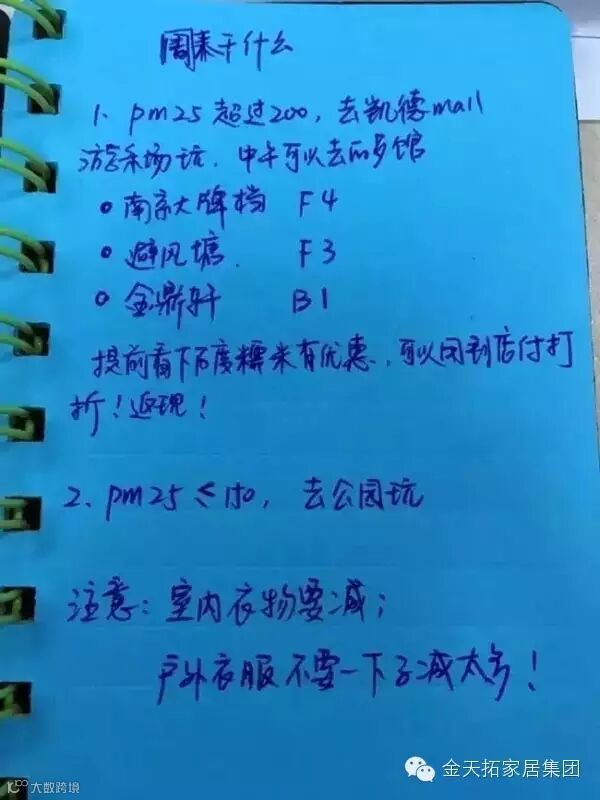 周末干什么
1、pm25 超过200,去凯德mall
游乐场玩,中午可以去的
• 南京大牌档 F4
• 避风塘 F3
• 金鼎轩 B1
提前看下百度糯米有优惠,可以用到店付打
折!返现!
2、pm25 ≤150,去公园玩
注意:室内衣物要减;
户外衣服不要一下子减太多!
金天拓家居集团
大数跨境